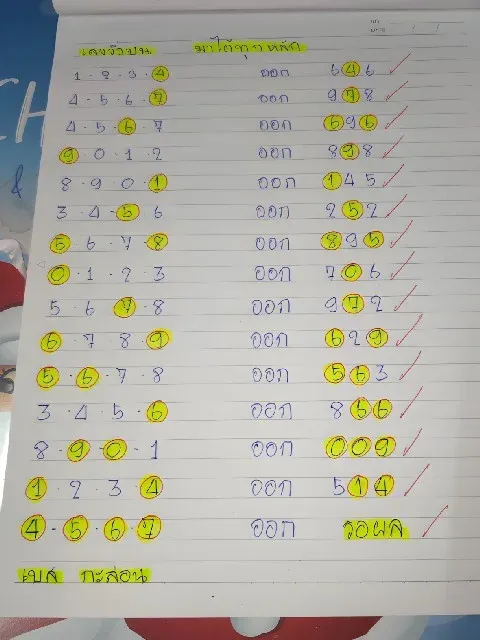 เลขวิ่งบน มาได้ทุกหลัก
1 · 2 · 3 · 4 ออก 646
4 · 5 · 6 · 7 ออก 978
4 · 5 · 6 · 7 ออก 696
9 · 0 · 1 · 2 ออก 898
8 · 9 · 0 · 1 ออก 145
3 · 4 · 5 6 ออก 252
5 · 6 · 7 · 8 ออก 895
0 · 1 · 2 · 3 ออก 706
5 · 6 · 7 · 8 ออก 972
6 · 7 · 8 · 9 ออก 629
5 · 6 · 7 · 8 ออก 563
3 · 4 · 5 · 6 ออก 866
8 · 9 · 0 · 1 ออก 009
1 · 2 · 3 · 4 ออก 514
4 · 5 · 6 · 7 ออก รอผล
เบส กะสอน